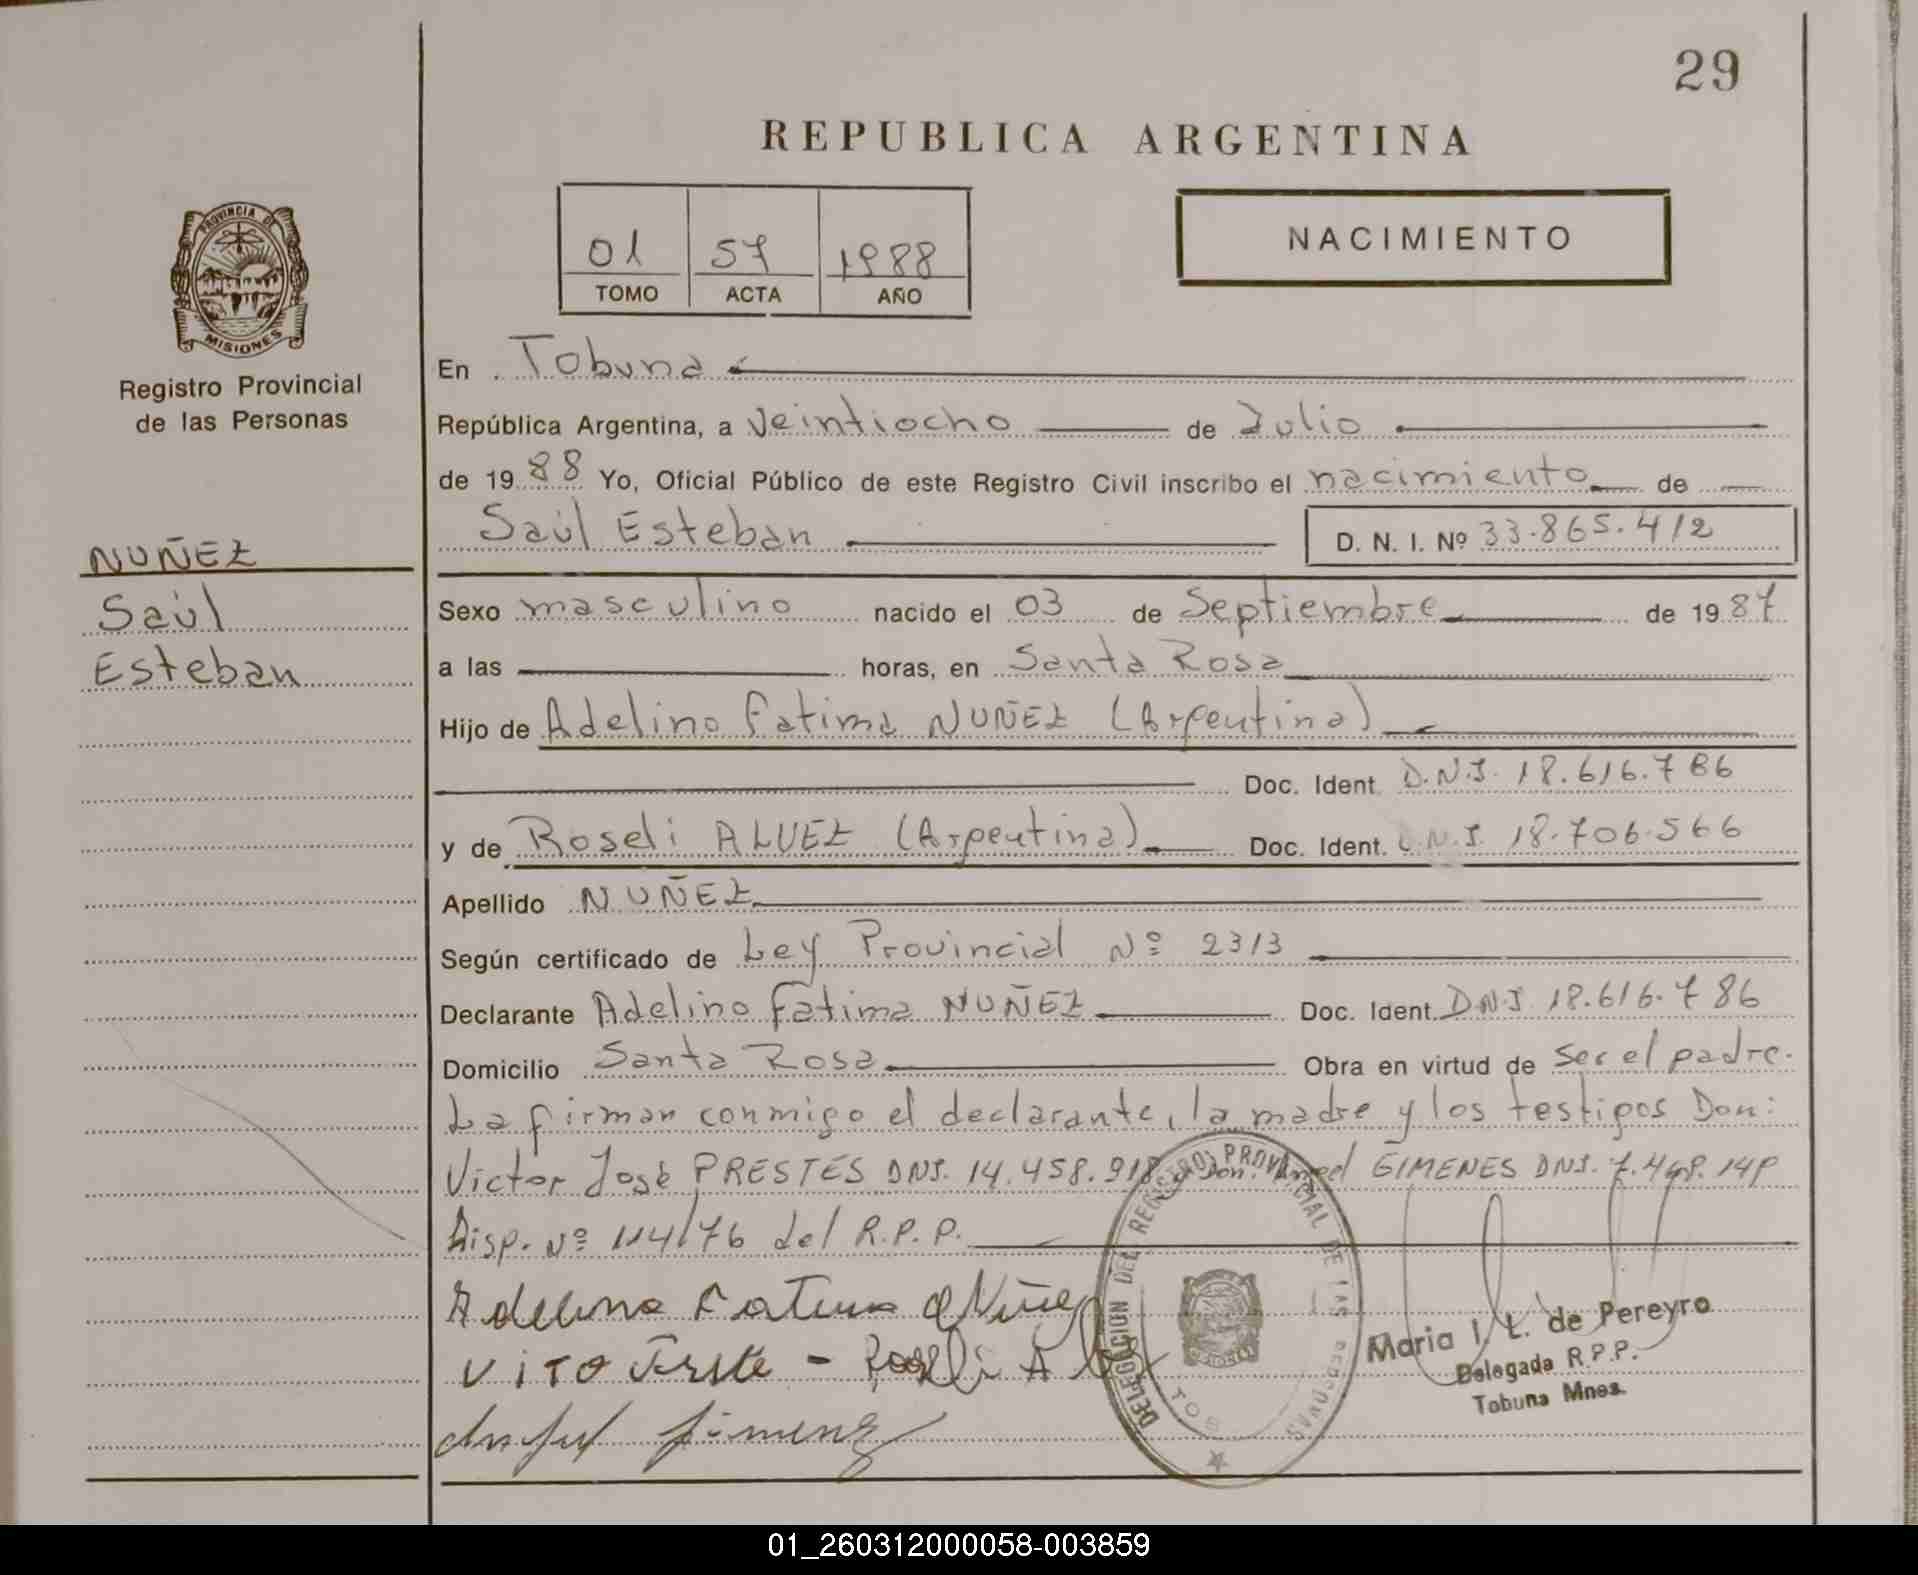 29
REPUBLICA ARGENTINA
PROVINCIA DE
MISIONES
Registro Provincial
de las Personas
01 57 1988
TOMO ACTA AÑO
NACIMIENTO
En Tobuna
República Argentina, a veintiocho de Julio
de 1988 Yo, Oficial Público de este Registro Civil inscribo el nacimiento de
Saúl Esteban D. N. I. Nº 33.865.412
NUÑEZ
Saúl
Esteban
Sexo masculino nacido el 03 de Septiembre de 1987
a las horas, en Santa Rosa
Hijo de Adelino Fatima NUÑEZ (Argentina)
Doc. Ident. D.N.I. 18.616.786
y de Roseli ALVEZ (Argentina) Doc. Ident. D.N.I. 18.706.566
Apellido NUÑEZ
Según certificado de Ley Provincial Nº 2313
Declarante Adelino Fatima NUÑEZ Doc. Ident. DNI 18.616.786
Domicilio Santa Rosa Obra en virtud de ser el padre.
La firman conmigo el declarante, la madre y los testigos Don:
Victor José PRESTES DNI. 14.458.918 Don: Angel GIMENES DNI.
Disp. Nº 114/76 del R.P.P.
DELEGACION DEL REGISTRO PROVINCIAL DE LAS PERSONAS
TOB
Maria I. L. de Pereyro
Delegada R.P.P.
Tobuna Mnes.
01_260312000058-003859